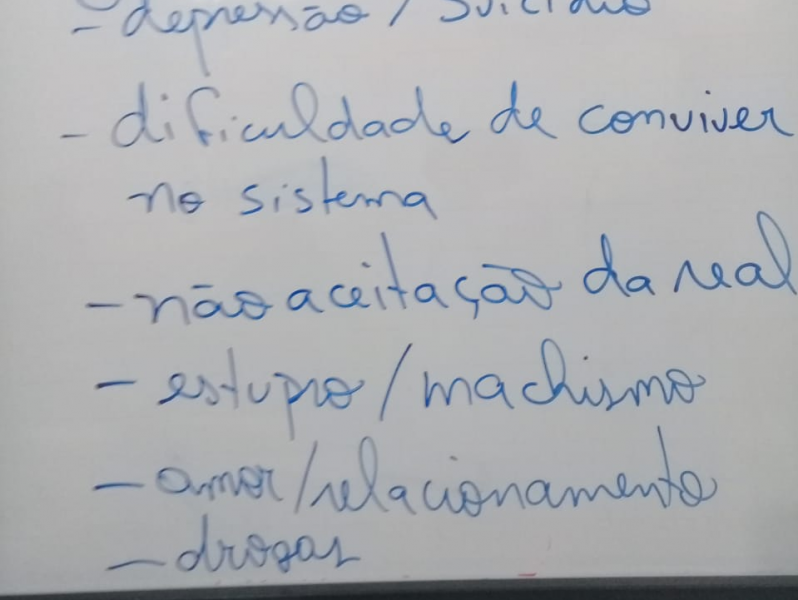 - depressão / suicídio
- dificuldade de conviver
no sistema
- não aceitação da real
- estupro / machismo
- amor/relacionamento
- drogas